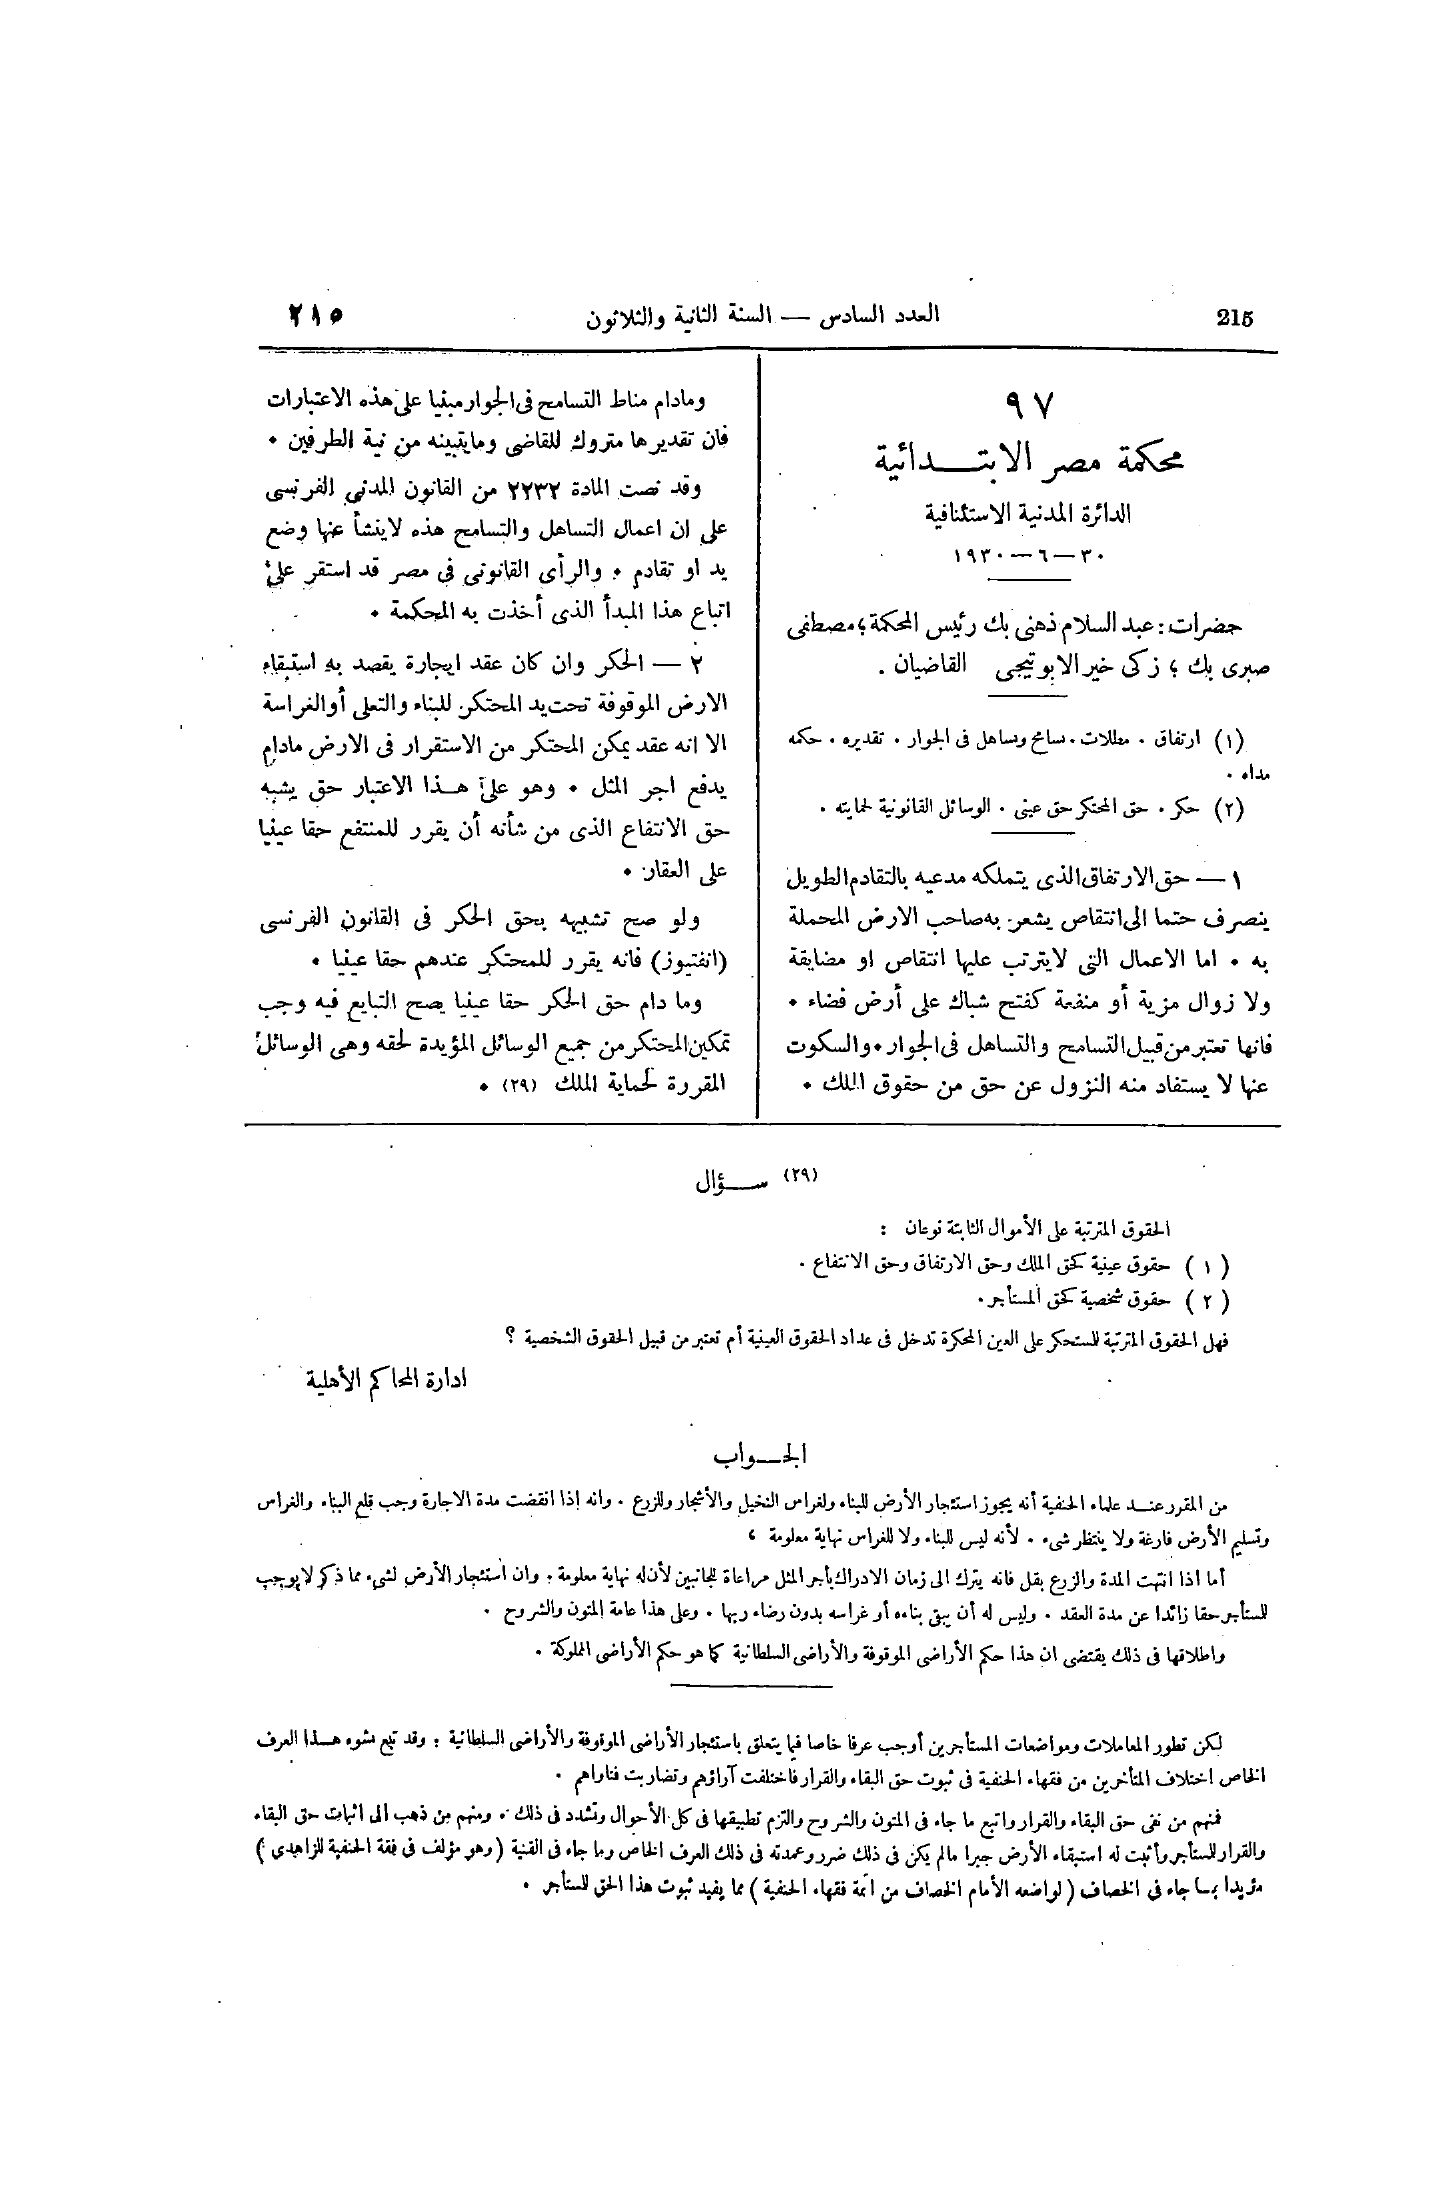 215
العدد السادس — السنة الثانية والثلاثون
٢١٥
٩٧
محكمة مصر الابتدائية
الدائرة المدنية الاستئنافية
٣٠—٦—١٩٣٠
حضرات: عبد السلام ذهنى بك رئيس المحكمة ؛ مصطفى
صبرى بك ؛ زكى خير الابوتيجى القاضيان .
(١) ارتفاق . مطلات . تسامح وتساهل فى الجوار . تقديره . حكمه
مداه .
(٢) حكر . حق المحتكر حق عينى . الوسائل القانونية لحمايته .
١ — حق الارتفاق الذى يتملكه مدعيه بالتقادم الطويل
ينصرف حتما الى انتقاص يشعر به صاحب الارض المحملة
به . اما الاعمال التى لايترتب عليها انتقاص او مضايقة
ولا زوال مزية أو منفعة كفتح شباك على أرض فضاء .
فانها تعتبر من قبيل التسامح والتساهل فى الجوار . والسكوت
عنها لا يستفاد منه النزول عن حق من حقوق الملك .
ومادام مناط التسامح فى الجوار مبنيا على هذه الاعتبارات
فان تقديرها متروك للقاضى ومايتبينه من نية الطرفين .
وقد نصت المادة ٢٢٣٢ من القانون المدنى الفرنسى
على ان اعمال التساهل والتسامح هذه لاينشأ عنها وضع
يد او تقادم . والرأى القانونى فى مصر قد استقر على
اتباع هذا المبدأ الذى أخذت به المحكمة .
٢ — الحكر وان كان عقد ايجارة يقصد به استبقاء
الارض الموقوفة تحت يد المحتكر للبناء والتعلى أو الغراسة
الا انه عقد يمكن المحتكر من الاستقرار فى الارض مادام
يدفع اجر المثل . وهو على هذا الاعتبار حق يشبه
حق الانتفاع الذى من شأنه أن يقرر للمنتفع حقا عينيا
على العقار .
ولو صح تشبيهه بحق الحكر فى القانون الفرنسى
(انفتيوز) فانه يقرر للمحتكر عندهم حقا عينيا .
وما دام حق الحكر حقا عينيا يصح التبايع فيه وجب
تمكين المحتكر من جميع الوسائل المؤيدة لحقه وهى الوسائل
المقررة لحماية الملك (٢٩) .
(٢٩) سؤال
الحقوق المترتبة على الأموال الثابتة نوعان :
( ١ ) حقوق عينية كحق الملك وحق الارتفاق وحق الانتفاع .
( ٢ ) حقوق شخصية كحق المستأجر .
فهل الحقوق المترتبة للمستحكر على العين المحكرة تدخل فى عداد الحقوق العينية أم تعتبر من قبيل الحقوق الشخصية ؟
ادارة المحاكم الأهلية
الجواب
من المقرر عند علماء الحنفية أنه يجوز استئجار الأرض للبناء ولغراس النخيل والأشجار وللزرع . وانه إذا انقضت مدة الاجارة وجب قلع البناء والغراس
وتسليم الأرض فارغة ولا ينتظر شىء . لأنه ليس للبناء ولا للغراس نهاية معلومة ،
أما اذا انتهت المدة والزرع بقل فانه يترك الى زمان الادراك بأجر المثل مراعاة للجانبين لأن له نهاية معلومة . وان استئجار الأرض لشىء مما ذكر لا يوجب
للمستأجر حقا زائدا عن مدة العقد . وليس له أن يبقى بناءه أو غراسه بدون رضاء ربها . وعلى هذا عامة المتون والشروح .
واطلاقها فى ذلك يقتضى ان هذا حكم الأراضى الموقوفة والأراضى السلطانية كما هو حكم الأراضى المملوكة .
لكن تطور المعاملات ومواضعات المستأجرين أوجب عرفا خاصا فيما يتعلق باستئجار الأراضى الموقوفة والأراضى السلطانية . وقد تبع نشوء هذا العرف
الخاص اختلاف المتأخرين من فقهاء الحنفية فى ثبوت حق البقاء والقرار فاختلفت آراؤهم وتضاربت فتاواهم .
فمنهم من نفى حق البقاء والقرار واتبع ما جاء فى المتون والشروح والتزم تطبيقها فى كل الأحوال وتشدد فى ذلك . ومنهم من ذهب الى اثبات حق البقاء
والقرار للمستأجر وأثبت له استبقاء الأرض جبرا مالم يكن فى ذلك ضرر وعمدته فى ذلك العرف الخاص وما جاء فى القنية ( وهو مؤلف فى فقة الحنفية للزاهدى )
مؤيدا بما جاء فى الخصاف ( لواضعه الأمام الخصاف من ائمة فقهاء الحنفية ) مما يفيد ثبوت هذا الحق للمستأجر .